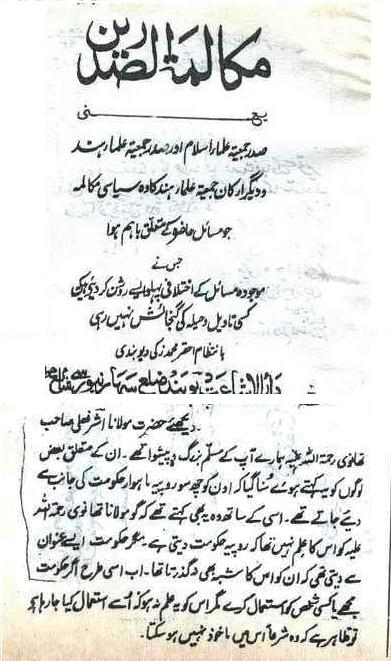 مکالمۃ الصدرین
یعنی
صدر جمعیۃ علماء اسلام اور صدر جمعیۃ علماء ہند
و دیگر ارکان جمعیۃ علماء ہند کا وہ سیاسی مکالمہ
جو مسائل حاضرہ کے متعلق باہم ہوا
جس نے
موجودہ مسائل کے اختلافی پہلو ایسے روشن کر دیئے ہیں کہ
کسی تاویل و حیلہ کی گنجائش نہیں رہی
بانتظام احقر محمد زکی دیوبندی
دار الاشاعت دیوبند ضلع سہارنپور سے شائع ہوا
دیکھئے حضرت مولانا اشرف علی صاحب
تھانوی رحمۃ اللہ علیہ ہمارے آپ کے مسلم بزرگ و پیشوا تھے۔ ان کے متعلق بعض
لوگوں کو یہ کہتے ہوئے سنا گیا کہ ان کو چھ سو روپیہ ماہوار حکومت کی جانب سے
دیئے جاتے تھے۔ اسی کے ساتھ وہ یہ بھی کہتے تھے کہ گو مولانا تھانوی رحمۃ اللہ
علیہ کو اس کا علم نہیں تھا کہ روپیہ حکومت دیتی ہے۔ مگر حکومت ایسے عنوان
سے دیتی تھی کہ ان کو اس کا شبہ بھی نہ گذرتا تھا۔ اب اسی طرح اگر حکومت
مجھے یا کسی شخص کو استعمال کرے مگر اس کو یہ علم نہ ہو کہ اُسے استعمال کیا جا رہا ہے
تو ظاہر ہے کہ وہ شرعاً اس میں ماخوذ نہیں ہو سکتا۔